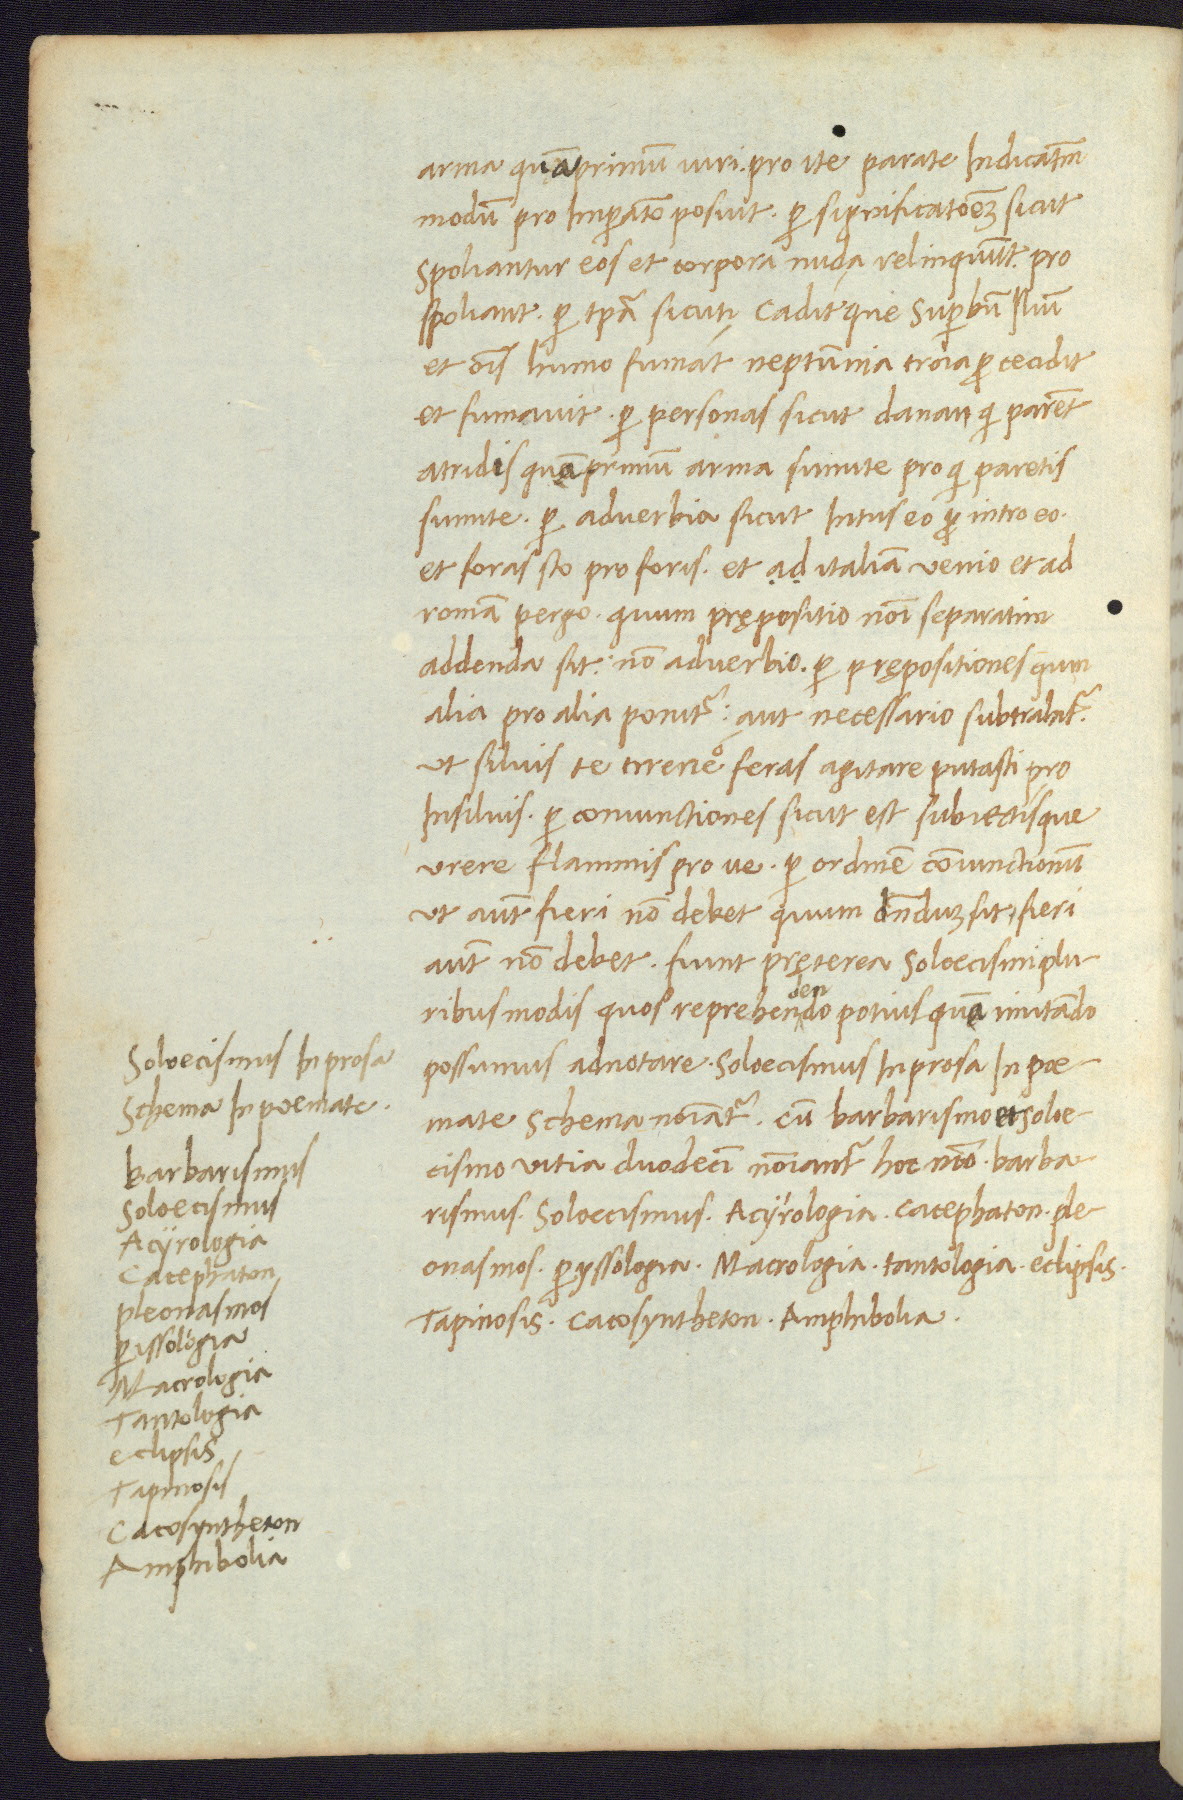 arma quā primū uiri. pro ite parate Indicatm̄
modū pro Imꝑato posuit. ꝑ significatōeꝫ sicut
Spoliantur eos et corpora nuda relinquūt. pro
spoliant. ꝑ tpa᷒ sicuti Caditque Suꝑbū Iliū
et ōis humo fumat neptunnia troia ꝓ cecidit
et fumauit. ꝑ personas sicut danan qi parēt
atridis quā primū arma sumite pro qi paretis
sumite. ꝑ aduerbia sicut Intus eo ꝓ intro eo.
et foras sto pro foris. et ad italiā venio et ad
romā pergo. quum prępositio noī separatim
addenda sit: nō aduerbio. ꝑ prępositiones qum
alia pro alia ponit᷒: aut necessario subtrahit᷒.
ut siluis te tirrene feras agitare putasti pro
Insiluis. ꝑ coniunctiones sicut est subiectisque
urere flammis pro ue. ꝑ ordinē cōiunctionū
ut aūt fieri nō debet quum dn̄duꝫ sit, fieri
aūt nō debet. fiunt pręterea Soloecismi plu-
ribus modis quos reprehendendo potius quā imitādo
possumus adnotare. Soloecismus In prosa In poe-
mate Schema noīat᷒. cū barbarismo et soloe-
cismo uitia duodecī noīant᷒ hoc nīo. barba-
rismus. Soloecismus. Acÿrologia. cacephaton. ple-
onasmos. ꝑyssologia. Macrologia. tantologia. eclipsis.
Tapinosis. Cacosyntheton. Amphibolia.
Soloecismus In prosa
Schema In poemate.
Barbarismus
Soloecismus
Acÿrologia
Cacephaton
pleonasmos
ꝑissologia
Macrologia
Tantologia
eclipsis
Tapinosis
Cacosyntheton
Amphibolia